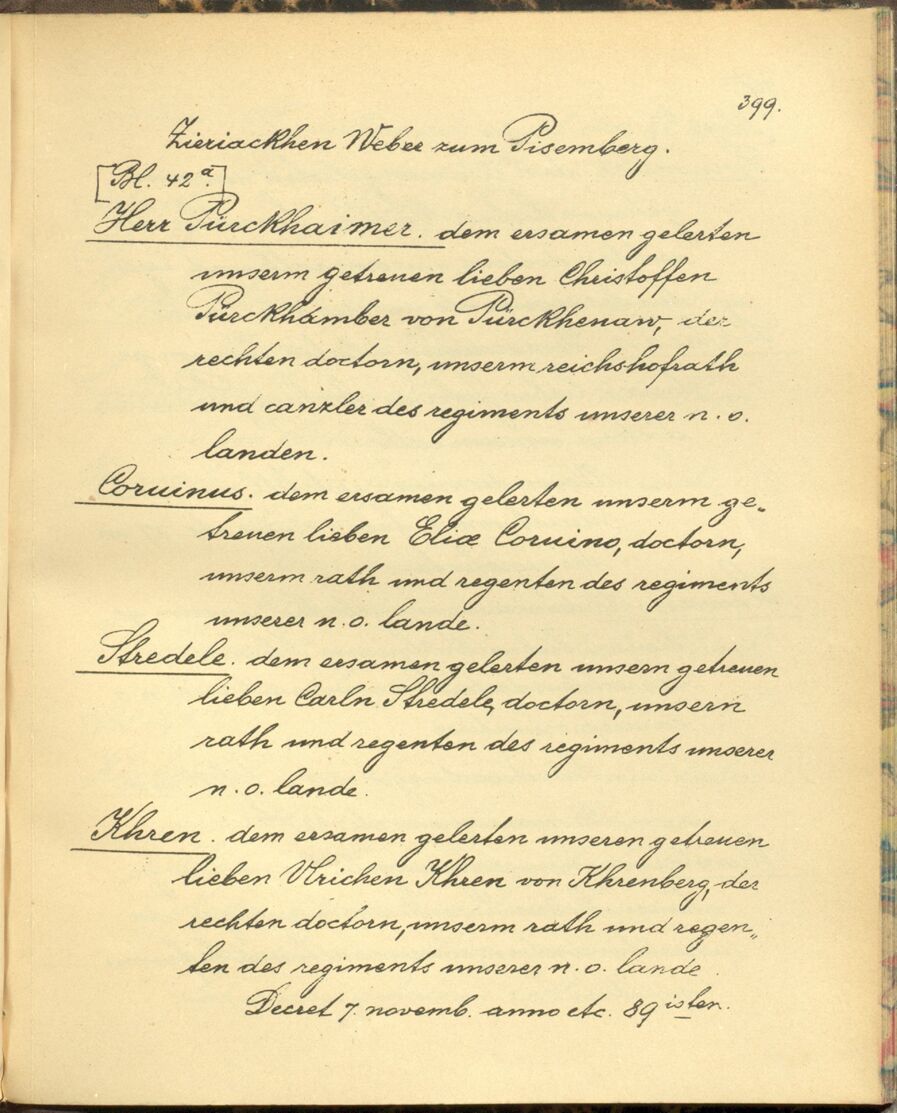 399.
Zieriackhen Weber zum Pisemberg.
[Bl. 42a.]
Herr Pürckhaimer. dem ersamen gelerten
unserm getreuen lieben Christoffen
Pürckhamber von Pürckhenaw, der
rechten doctorn, unserm reichshofrath
und canzler des regiments unserer n. o.
landen.
Coruinus. dem ersamen gelerten unserm ge-
treuen lieben Eliæ Coruino, doctorn,
unserm rath und regenten des regiments
unserer n. o. lande.
Stredele. dem ersamen gelerten unsern getreuen
lieben Carln Stredele, doctorn, unsern
rath und regenten des regiments unserer
n. o. lande.
Khren. dem ersamen gelerten unseren getreuen
lieben Vlrichen Khren von Khrenberg, der
rechten doctorn, unserm rath und regen„
ten des regiments unserer n. o. lande.
Decret 7. novemb. anno etc. 89isten.